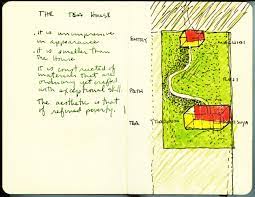 THE TEA HOUSE
. it is unimpressive
in appearance
. it is smaller than
the house
. it is constructed of
materials that are
ordinary yet crafted
with exceptional skill.
The aesthetic is that
of refined poverty.
ENTRY
PATH
TEA